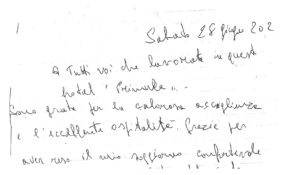 Sabato 28 giugno 202
A Tutti voi che lavorate in quest
hotel "Primula".
Sono grata per la calorosa accoglienza
e l'eccellente ospitalità. Grazie per
aver reso il mio soggiorno confortevole